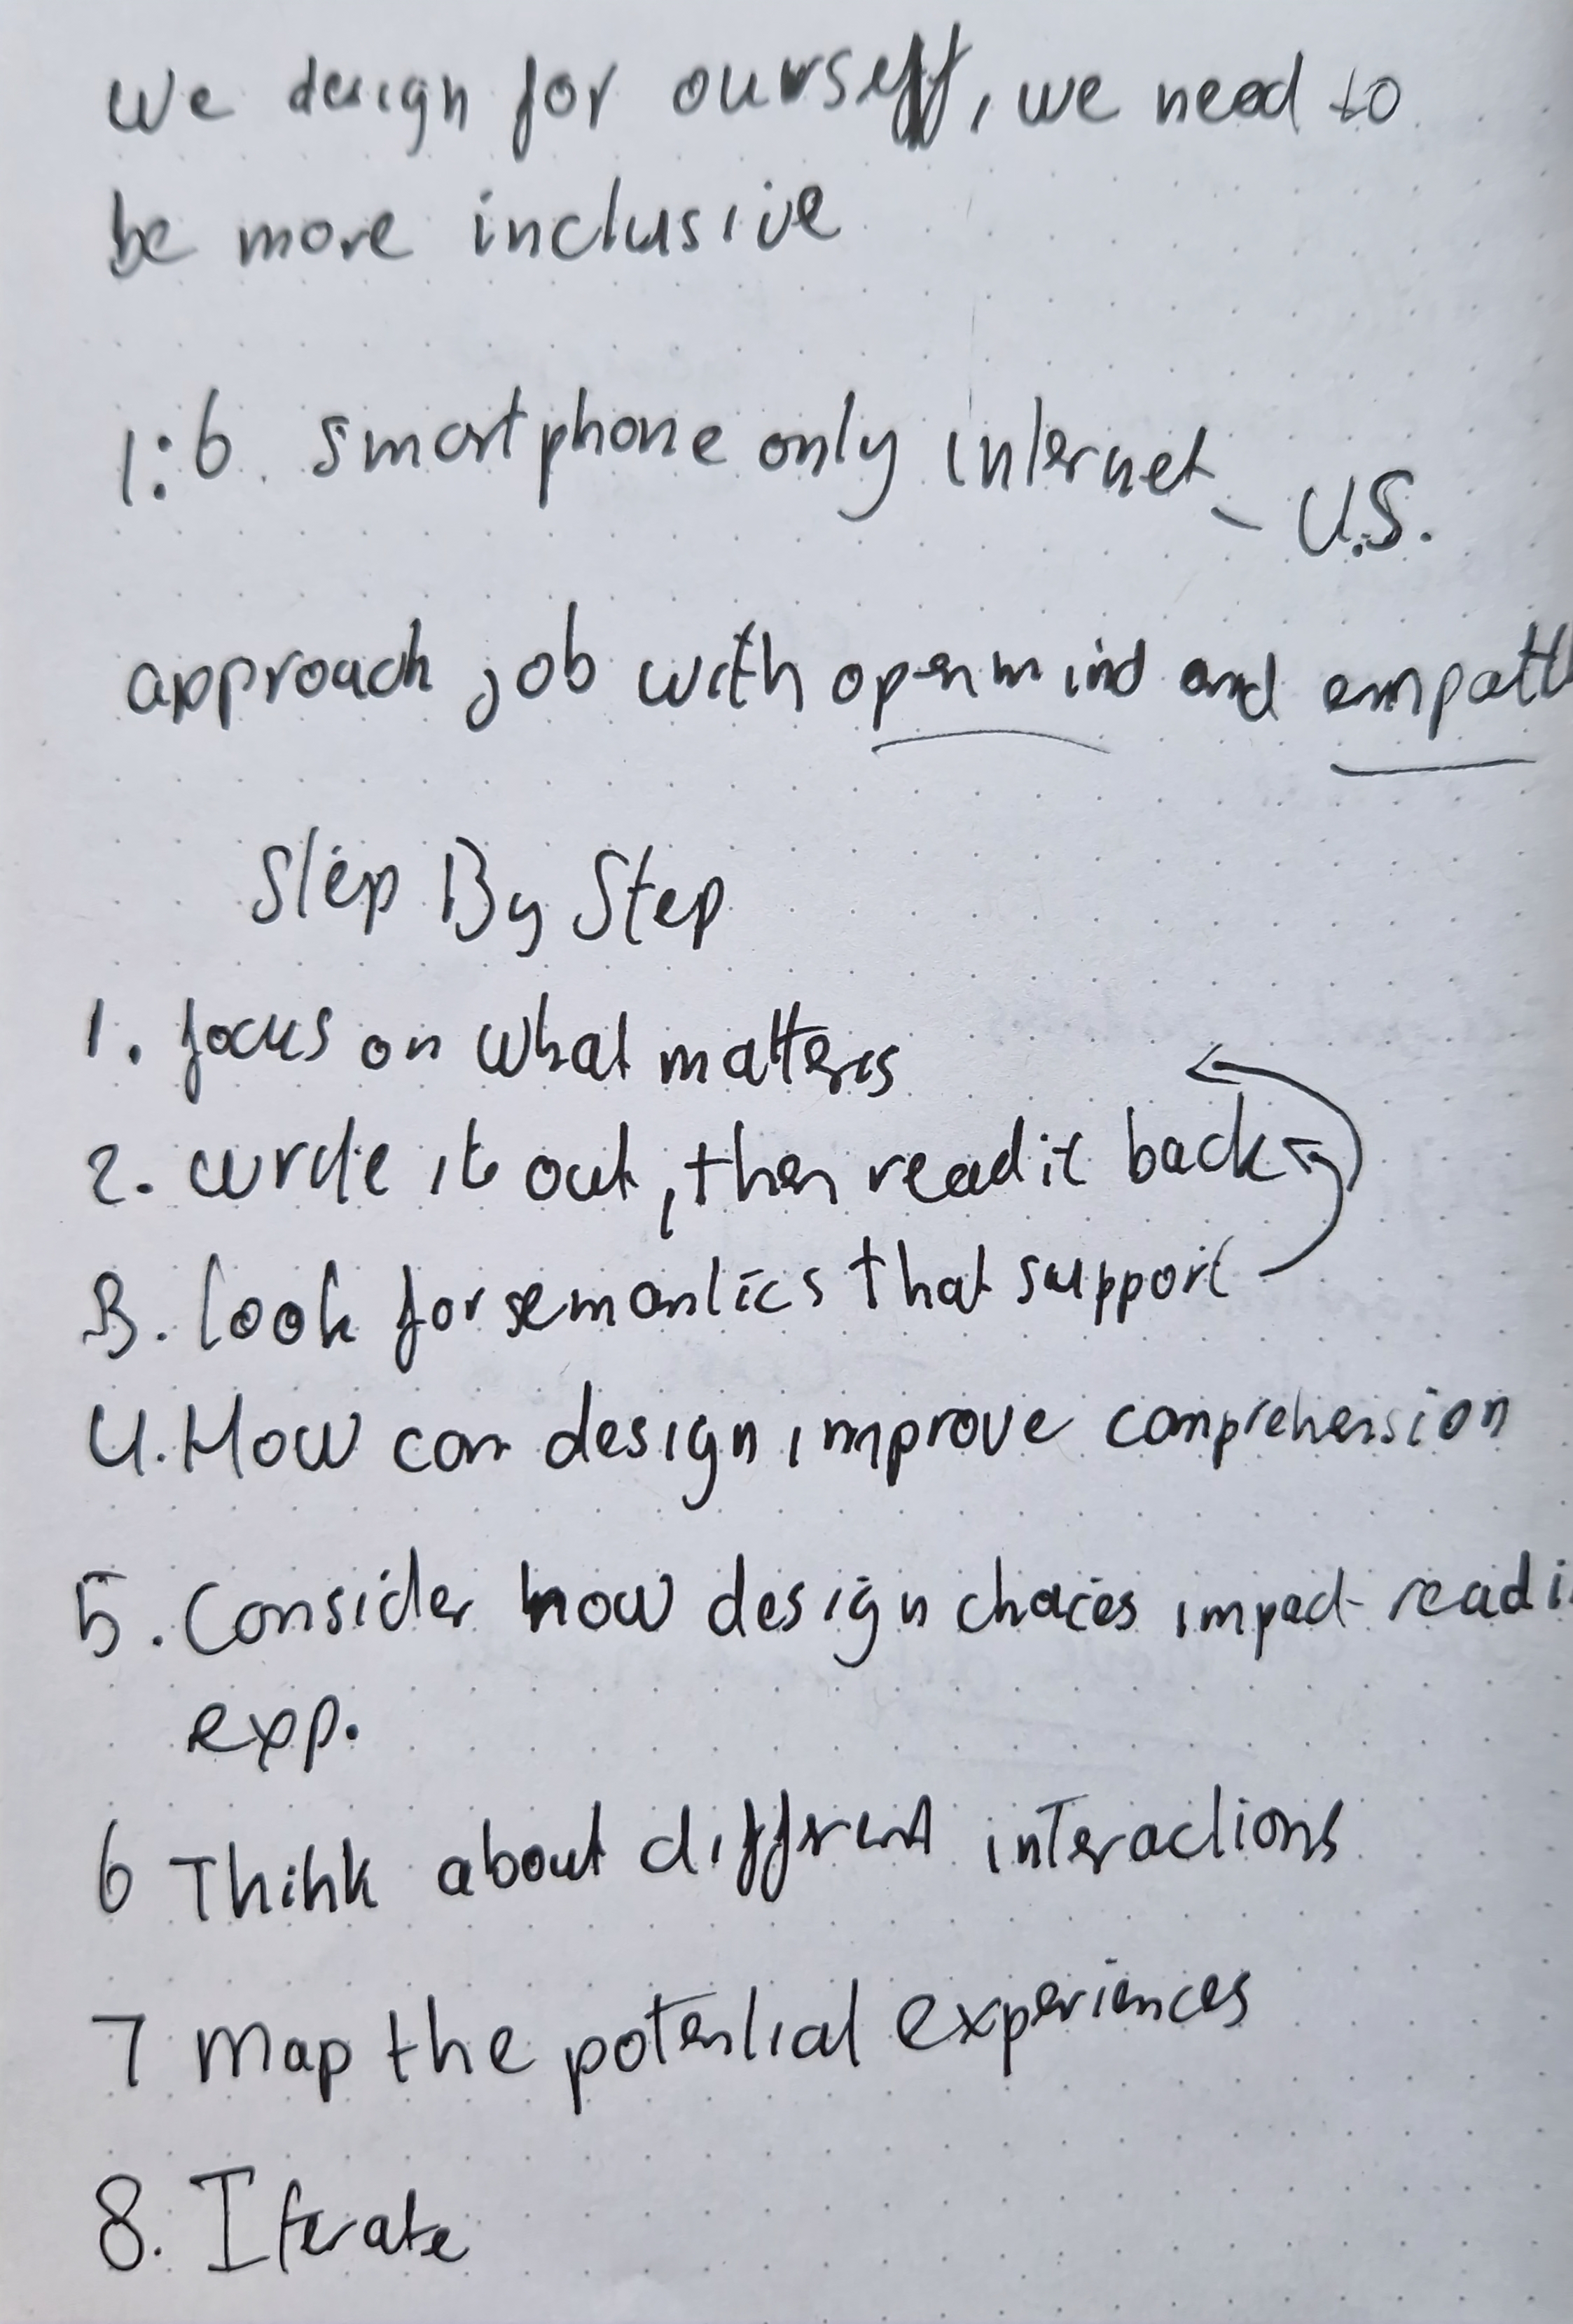 We design for ourself, we need to
be more inclusive
1:6. smartphone only internet - U.S.
approach job with openmind and empath
Step By Step
1. focus on what matters
2. write it out, then read it back
3. look for semantics that support
4. How can design improve comprehension
5. Consider how design choices impact readi
exp.
6 Think about different interactions
7 Map the potential experiences
8. Iterate